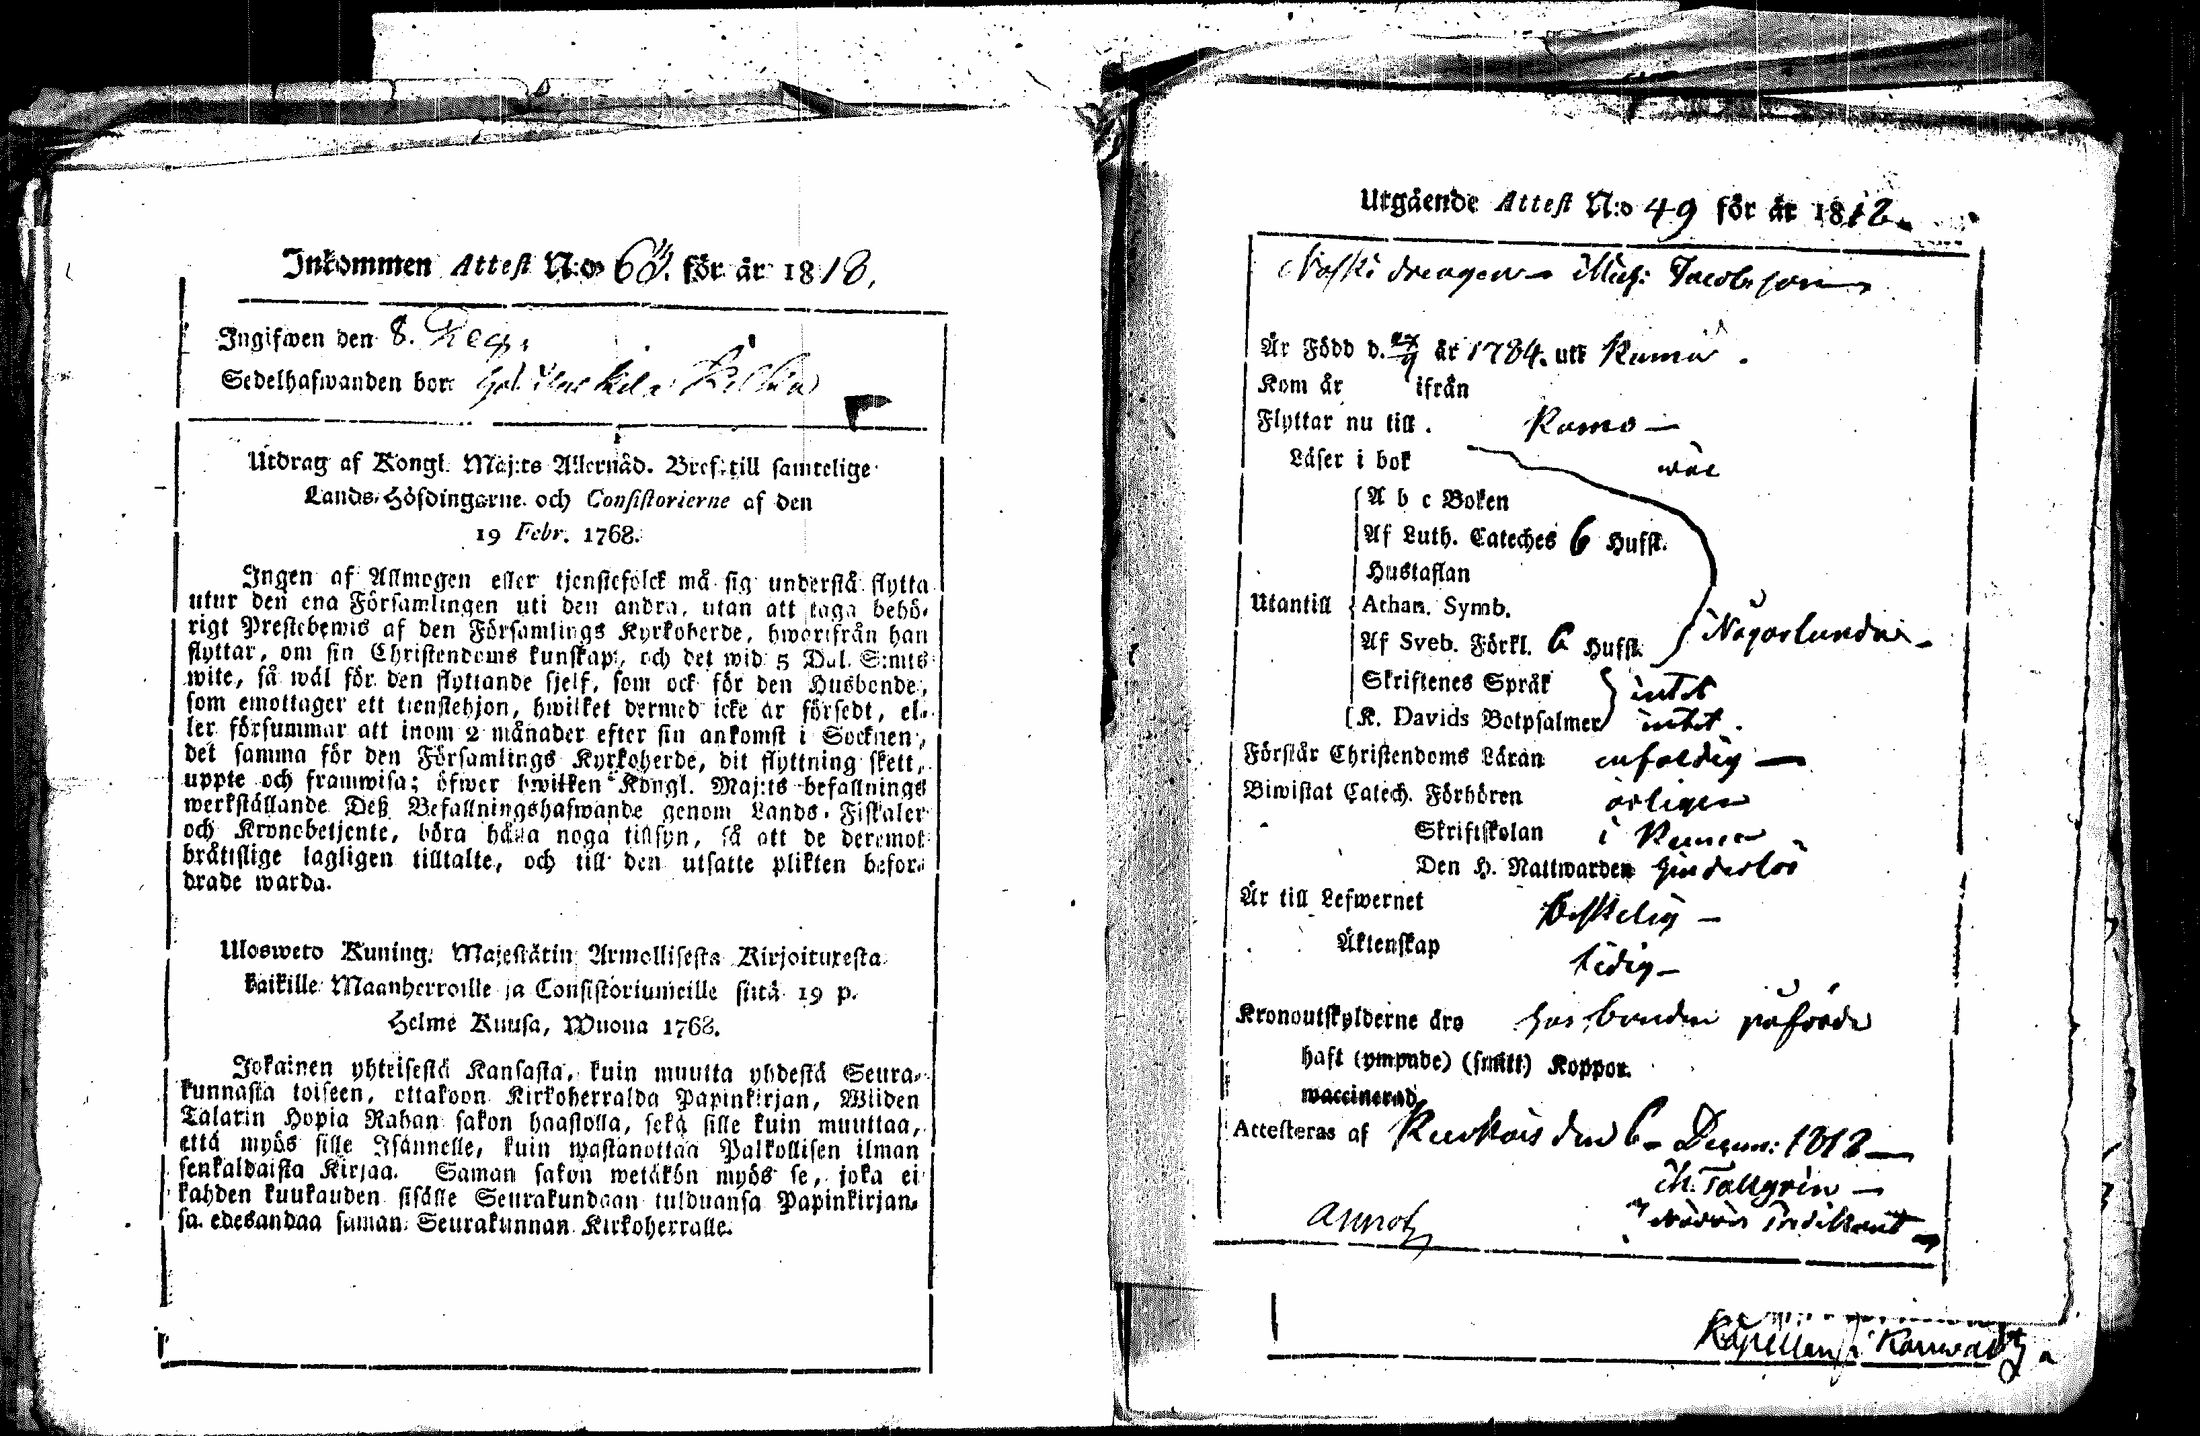 Inkommen Attest N:o 63. för år 1818.
Ingifwen den 8. Dec.
Sedelhafwanden bor
Utdrag af Kongl. Maj:ts Allernåd. Bref till samtelige
Lands-Höfdingarne och Consistorierne af den
19 Febr. 1768.
Ingen af Allmogen eller tjenstefolck må sig understå flytta
utur den ena Församlingen uti den andra, utan att taga behö-
rigt Prestebewis af den Församlings Kyrkoherde, hwarifrån han
flyttar, om sin Christendoms kunskap, och det wid 5 Dal. S:mts
wite, så wäl för den flyttande sjelf, som ock för den Husbonde,
som emottager ett tienstehjon, hwilket dermed icke är försedt, el-
ler försummar att inom 2 månader efter sin ankomst i Socknen,
det samma för den Församlings Kyrkoherde, dit flyttning skett,
uppte och framwisa; öfwer hwilken Kongl. Maj:ts befallnings
werkställande Deß Befallningshafwande genom Lands-Fiskaler
och Kronobetjente, böra hålla noga tillsyn, så att de deremot
bråtislige lagligen tilltalte, och till den utsatte plikten befor-
drade warda.
Ulosweto Kuning. Majestätin Armollisesta Kirjoituxesta
kaikille Maanherroille ja Consistoriumeille siitä 19 p.
Helme Kuusa, Wuona 1768.
Jokainen yhteisestä Kansasta, kuin muutta yhdestä Seura-
kunnasta toiseen, ottakoon Kirkoherralda Papinkirjan, Wiiden
Talarin Hopia Rahan sakon haastolla, sekä sille kuin muuttaa,
että myös sille Isännelle, kuin wastanottaa Palkollisen ilman
senkaldaista Kirjaa. Saman sakon wetäkön myös se, joka ei
kahden kuukauden sisälle Seurakundaan tulduansa Papinkirjan-
sa edesandaa saman Seurakunnan Kirkoherralle.
Utgående Attest N:o 49 för år 1818.
drengen Mich: Jacobsson
Är Född d. 27/9 år 1784. utt Kumo.
Kom år ifrån
Flyttar nu till. Kumo
Läser i bok wäl
A b c Boken
Af Luth. Cateches 6 Hufst.
Hustaflan
Utantill Athan. Symb.
Af Sveb. Förkl. 6 Hufst. Någorlunda
Skriftenes Språk intet
K. Davids Botpsalmer intet.
Förstår Christendoms Läran enfoldig
Biwistat Catech. Förhören årligen
Skriftskolan i Kumo
Den H. Nattwarden hinderlös
Är till Lefwernet beskelig
Äktenskap ledig
Kronoutskylderne äro hos bonden påförde
haft (ympade) (smitt) Koppor.
waccinerad
Attesteras af den 6 Decem: 1818
Tallgrén
Annot
i